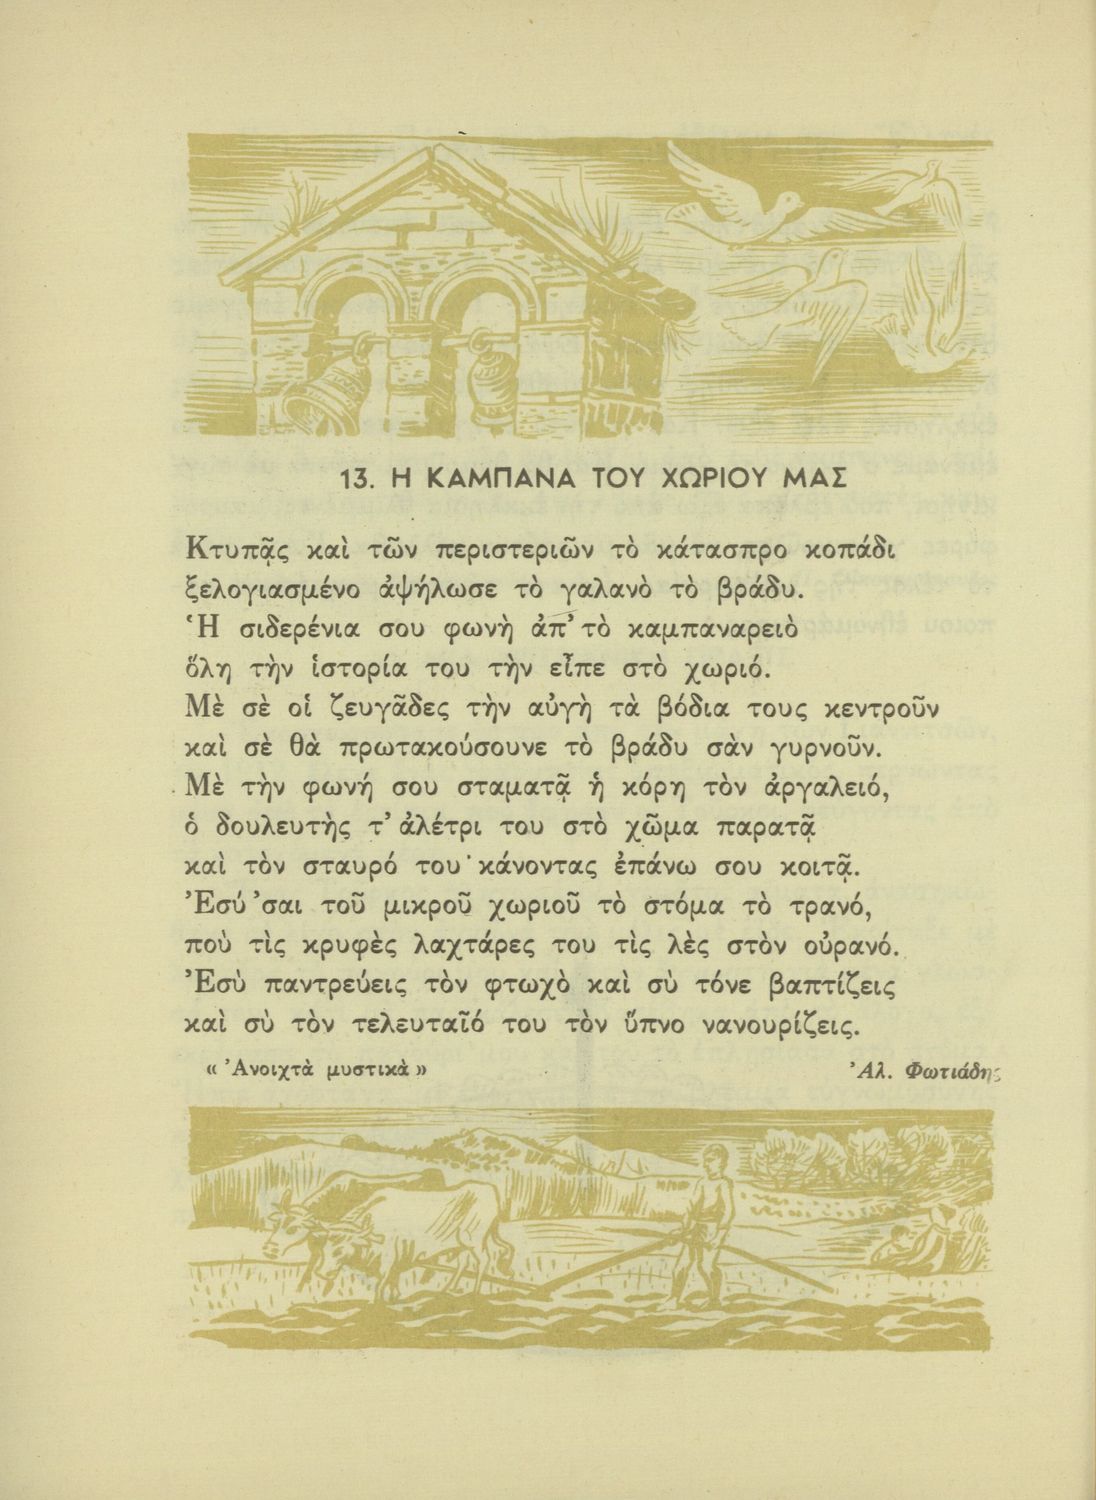 13. Η ΚΑΜΠΑΝΑ ΤΟΥ ΧΩΡΙΟΥ ΜΑΣ
Κτυπᾷς καὶ τῶν περιστεριῶν τὸ κάτασπρο κοπάδι
ξελογιασμένο ἀψήλωσε τὸ γαλανὸ τὸ βράδυ.
Ἡ σιδερένια σου φωνὴ ἀπ’ τὸ καμπαναρειὸ
ὅλη τὴν ἱστορία του τὴν εἶπε στὸ χωριό.
Μὲ σὲ οἱ ζευγᾶδες τὴν αὐγὴ τὰ βόδια τους κεντροῦν
καὶ σὲ θὰ πρωτακούσουνε τὸ βράδυ σὰν γυρνοῦν.
Μὲ τὴν φωνή σου σταματᾷ ἡ κόρη τὸν ἀργαλειό,
ὁ δουλευτὴς τ’ ἀλέτρι του στὸ χῶμα παρατᾷ
καὶ τὸν σταυρό του κάνοντας ἐπάνω σου κοιτᾷ.
Ἐσύ ’σαι τοῦ μικροῦ χωριοῦ τὸ στόμα τὸ τρανό,
ποὺ τὶς κρυφὲς λαχτάρες του τὶς λὲς στὸν οὐρανό.
Ἐσὺ παντρεύεις τὸν φτωχὸ καὶ σὺ τόνε βαπτίζεις
καὶ σὺ τὸν τελευταῖό του τὸν ὕπνο νανουρίζεις.
« Ἀνοιχτὰ μυστικὰ »
Ἀλ. Φωτιάδης